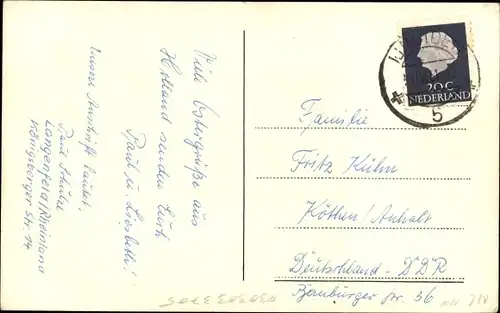 Viele Ostergrüße aus
Holland senden Euch
Paul u. Liesbeth!
Unsere Anschrift lautet:
Paul Schulze
Langenfeld/Rheinland
Königsberger Str. 14
20 C
NEDERLAND
5
Familie
Fritz Kühn
Köthen/Anhalt
Deutschland - DDR
Bernburger Str. 36